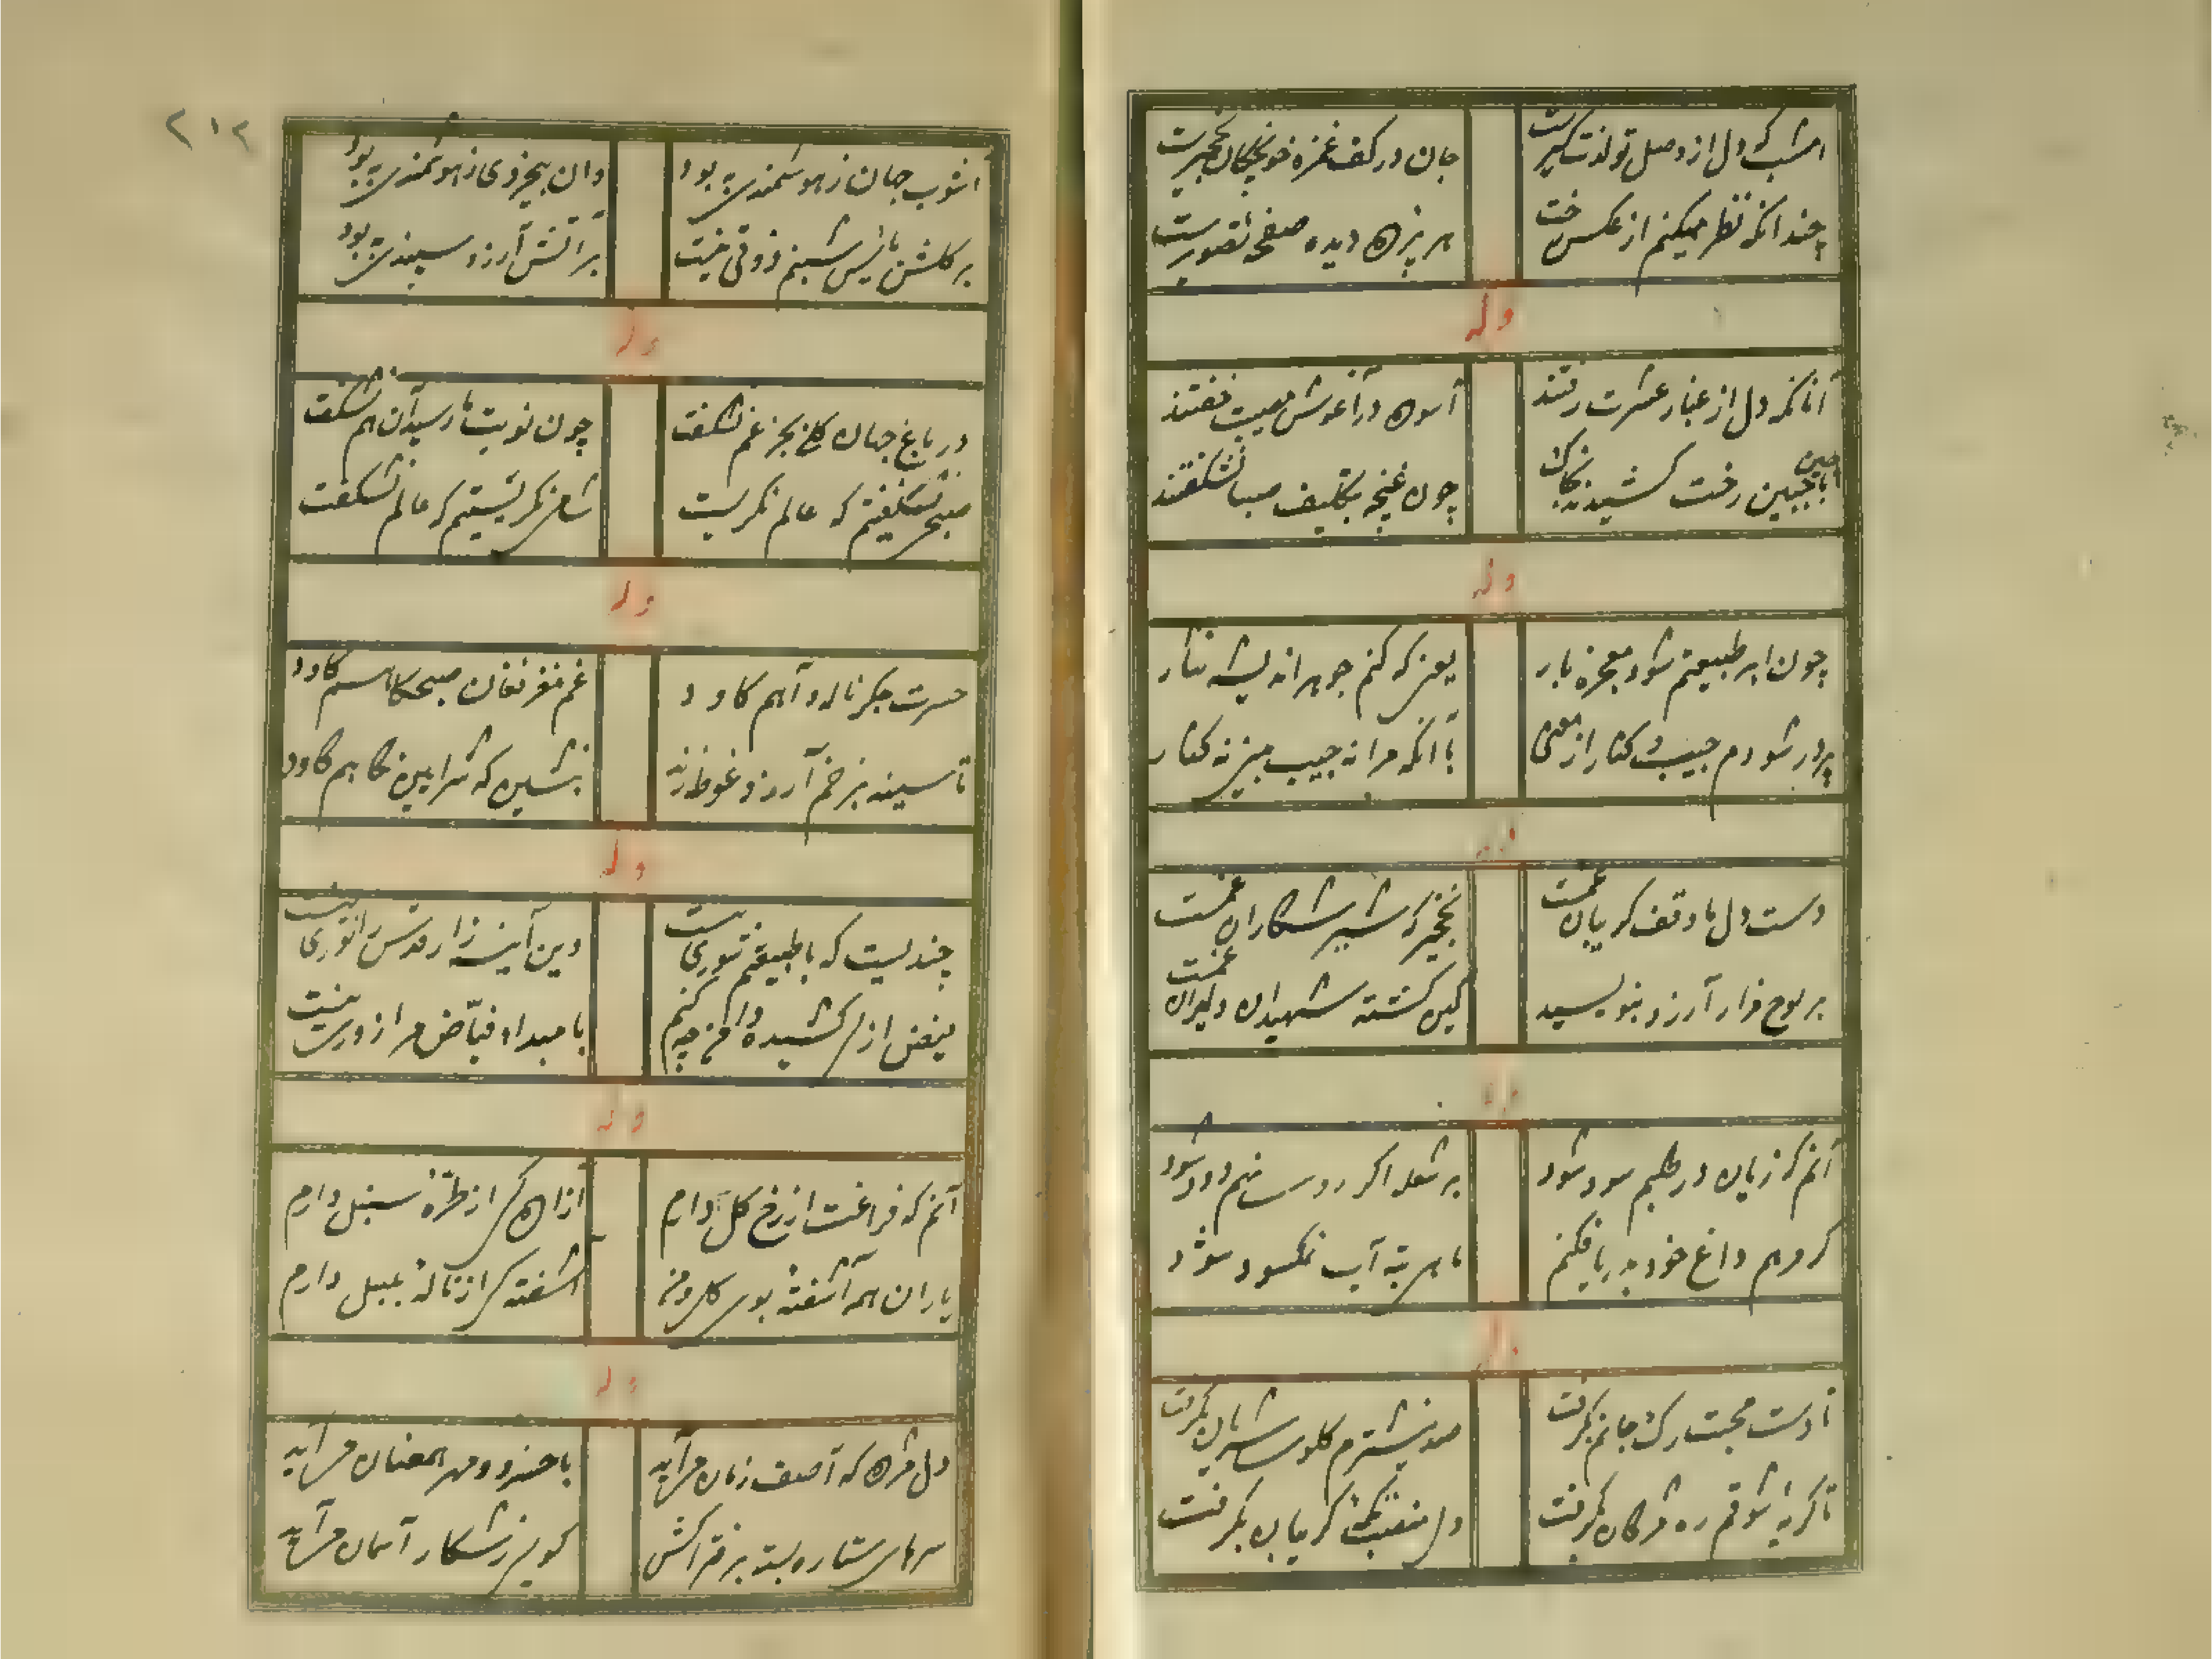 امشب که دل از وصل تو لذت گیرست
جان در کف غمزه خونچکان نخچیرست
چندانکه نظر میکنم از عکس رخت
هر پرده دیده صفحه تصویرست
وله
آنانکه دل از غبار عشرت رفتند
آسوده در آغوش مصیبت خفتند
با جبین رخت کشیدند بخاک
چون غنچه بتکلیف صبا نشکفتند
وله
چون ابر طبیعتم شود معجزه بار
یعنی که کنم جوهر اندیشه نثار
پر در شودم جیب و کنار از معنی
با آنکه مرا نه جیب بینی نه کنار
دست دل ما وقف گریبان غمست
نخچیر که شیر شکاران غمست
بر لوح مزار آرزو بنویسید
کین کشته شهیدان دلیران غمست
آنم که زیان در طلبم سود شود
بر شعله اگر دست نهم دود شود
گر مرهم داغ خود بدریا فکنم
ماهی بته آب نمکسود شود
تا دست محبت رک جانم بگرفت
صد نیشترم کلوی شریان بگرفت
تا گریه شوقم ره مژگان بگرفت
دل منصب گریبان بگرفت
۲۱۲
آشوب جهان ز هوشمندی به بود
وان بیخودی ز هوشمندی به بود
بر گلشن ما شبنم ذوقی نیست
بر آتش آرزو سپندی به بود
وله
در باغ جهان گلی بجز غم نشکفت
چون نوبت ما رسید آن هم نشکفت
صبحی نشکفتیم که عالم نگریست
شامی نگریستیم که عالم نشکفت
وله
حسرت جگر ناله و آهم کاود
غم مغز فغان صبحگاهم کاود
تا سینه بزخم آرزو غوطه زند
بنشین که شرابین نگاهم کاود
وله
چندیست که با طبیعتم شوری نیست
وین آینه زار قدس را نوری نیست
فیض ازلی کشیده دامن چه کنم
با مبداء فیاض مرا زوری نیست
وله
آنم که فراغت از رخ گل دارم
آزادگی از طره سنبل دارم
یاران همه آشفته بوی گل و من
آشفتگی از ناله بلبل دارم
وله
دل مژده که آصف زمان می‌آید
با خسرو و مهر همعنان می‌آید
سرهای ستاره بسته بر فتراکش
گویی ز شکار آسمان می‌آید